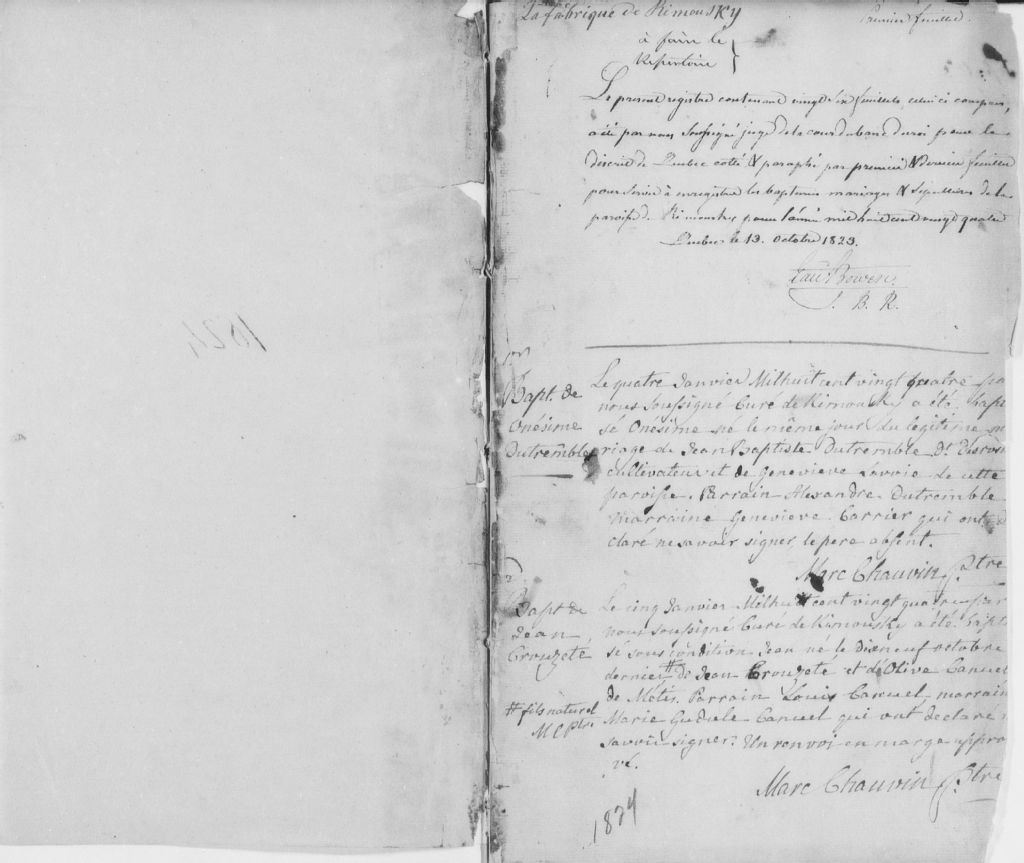 La fabrique de Rimousky
Premier feuillet.
à faire le
Repertoire
Le present registre contenant vingt six feuillets, celui ci compris,
a été par nous soussigné juge de la cour du banc du roi pour le
district de Quebec coté & paraphé par premier & dernier feuillet
pour servir à enregistrer les baptemes mariages & sépultures de la
paroisse de Rimousky pour l'année mil huit cent vingt quatre
Quebec le 13. Octobre 1823.
Edw Bowen.
J. B. R.
1824
Bapt. de
Onésime
Dutremble
Le quatre Janvier Milhuit cent vingt quatre pa
nous soussigné Curé de Rimousky a été bapti
sé Onésime né le même jour du légitime ma
riage de Jean Baptiste Dutremble dt
cultivateur et de Genevieve Savoie de cette
paroisse. Parrain Alexandre Dutremble
marraine Genevieve Carrier qui ont dé
claré ne savoir signer, le pere absent.
Marc Chauvin Ptre
2.
Bapt de
Jean
Crouzete
# fils naturel
MC Ptre
Le cinq Janvier Milhuit cent vingt quatre par
nous soussigné Curé de Rimousky a été bapti
sé sous condition Jean né le dixneuf octobre
dernier # de Jean Crouzeté et d'Olive Canuel
de Métis. Parrain Louis Canuel, marraine
Marie Gudule Canuel qui ont declaré n
savoir signer. Un renvoi en marge appro
vé.
Marc Chauvin Ptre
1824